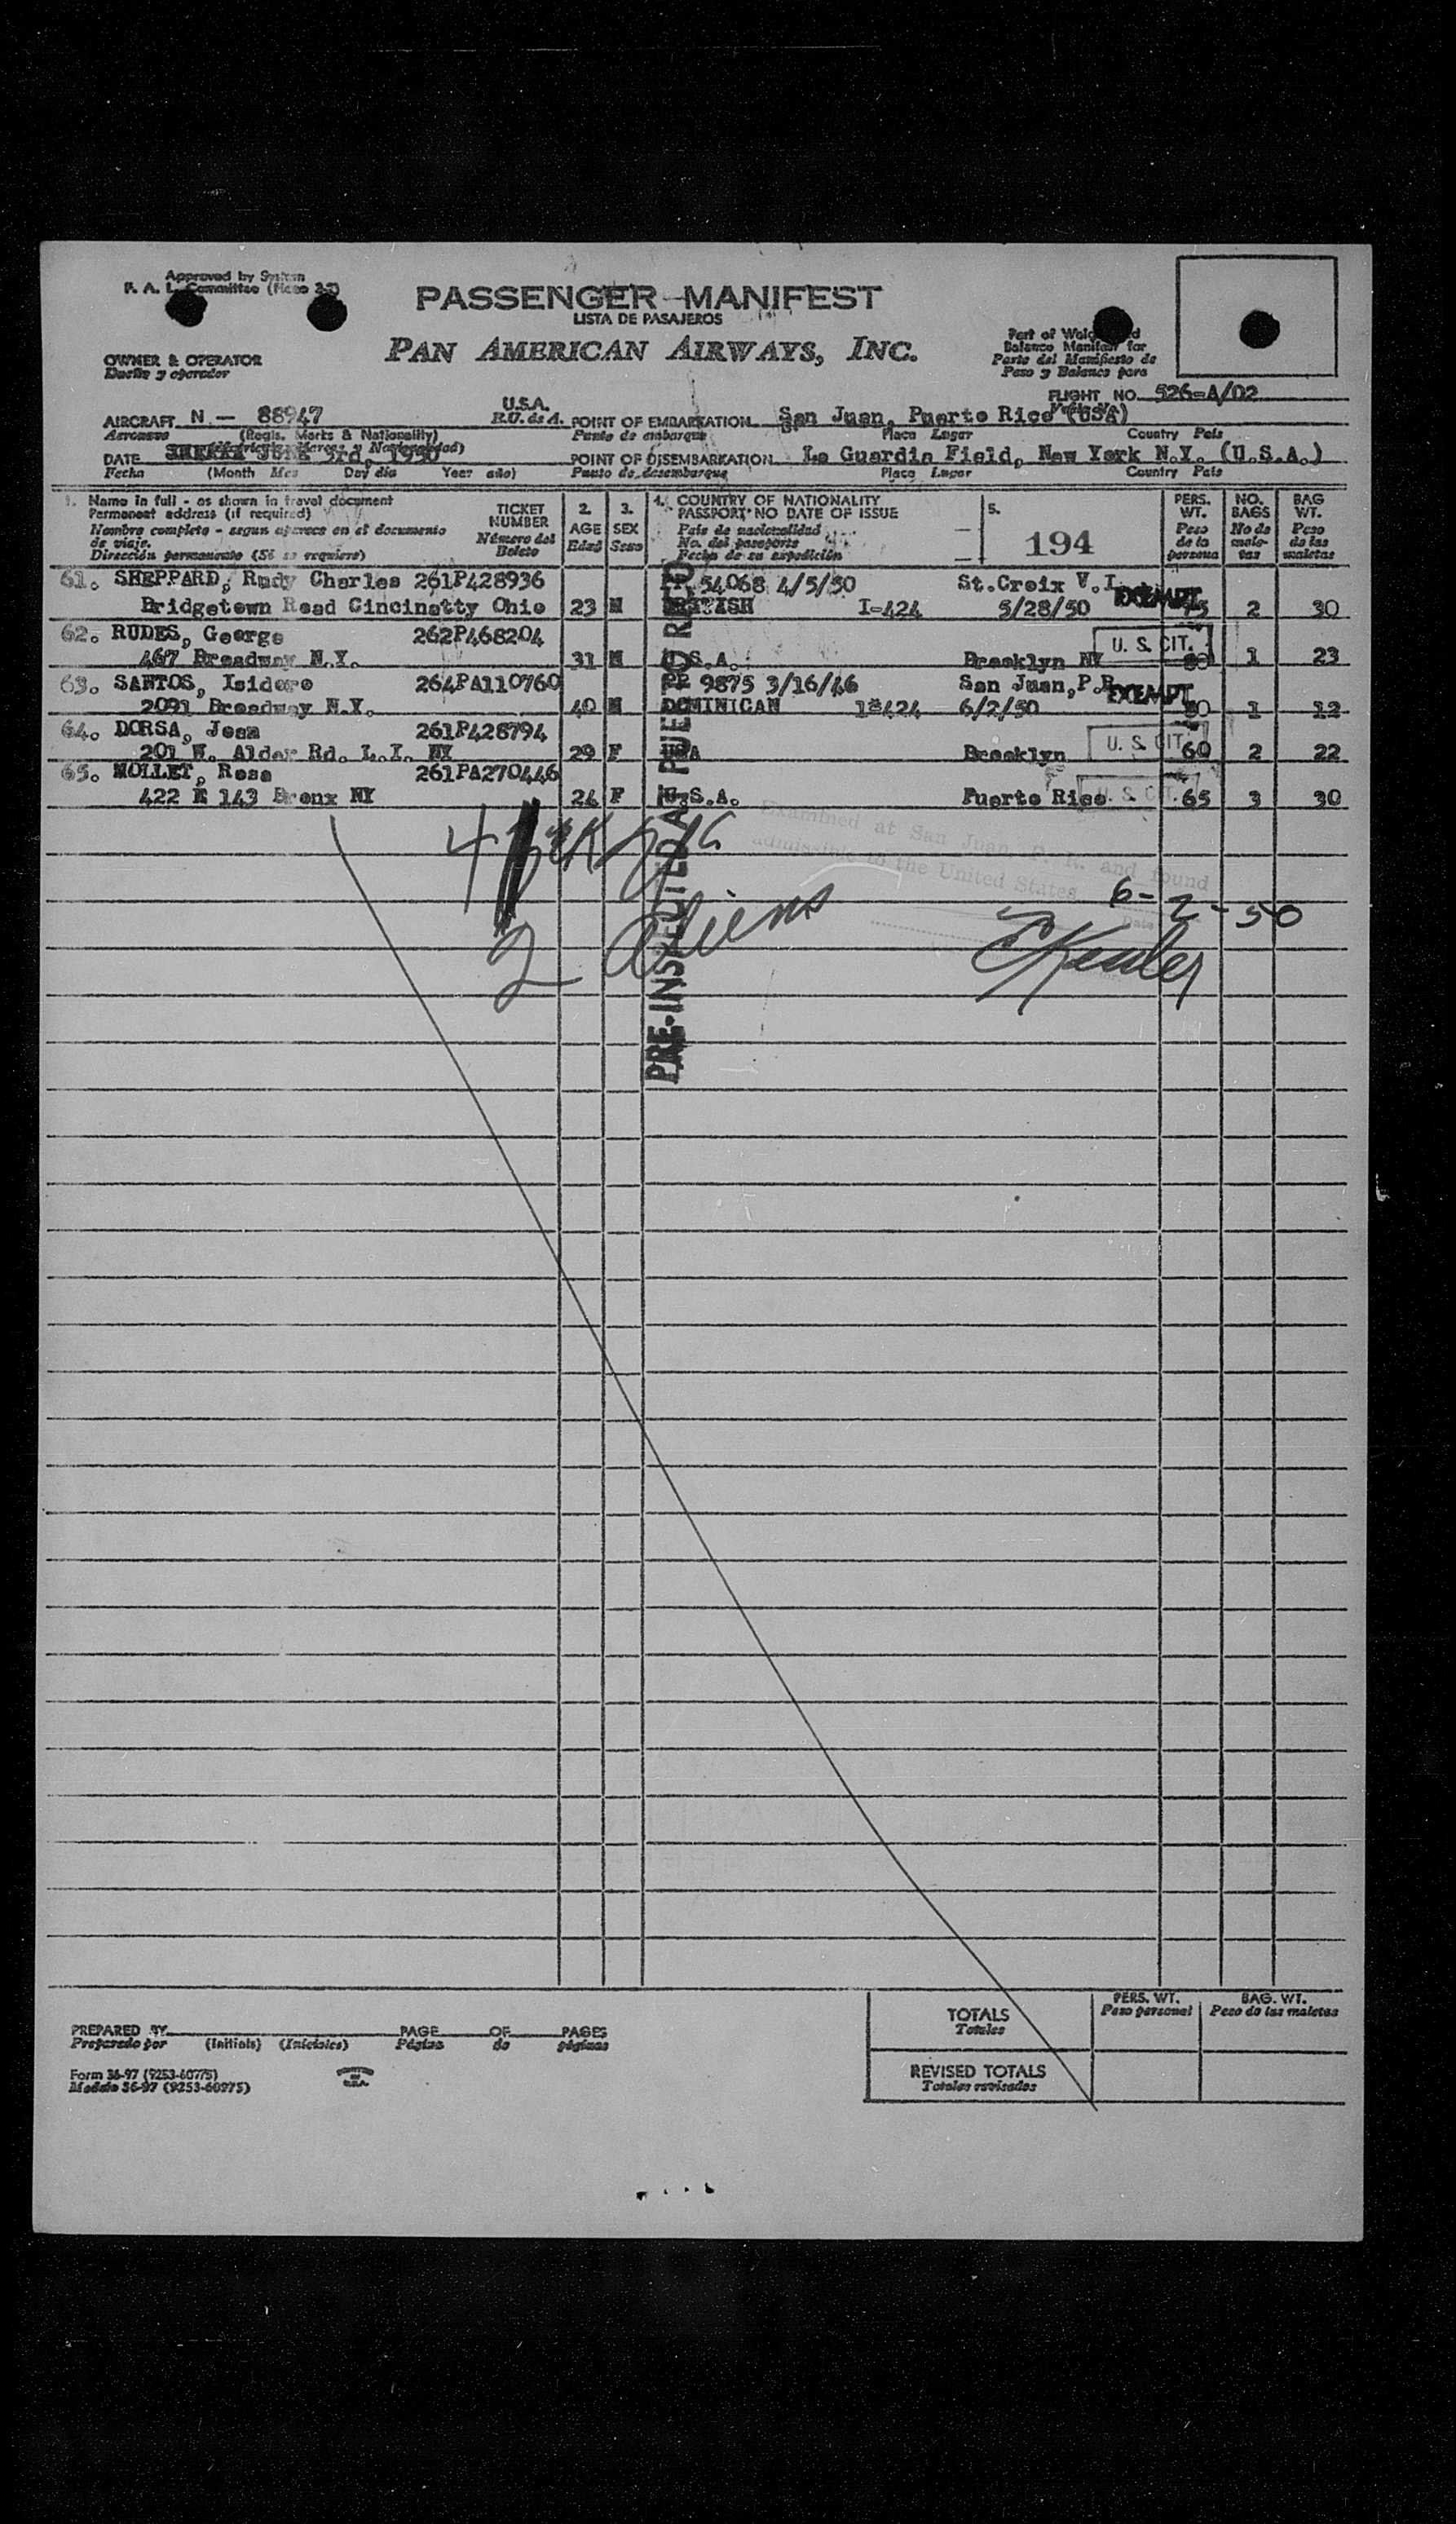 Approved by System
F. A. L. Committee
PASSENGER MANIFEST
LISTA DE PASAJEROS
PAN AMERICAN AIRWAYS, INC.
OWNER & OPERATOR
Dueño y operador
Part of Weight and
Balance Manifest for
Parte del Manifiesto de
Peso y Balance para
FLIGHT NO. 526-A/02
AIRCRAFT N - 88947 U.S.A.
Aeronave (Regis. Marks & Nationality) E.U. de A.
POINT OF EMBARKATION San Juan, Puerto Rico (USA)
Punto de embarque Place Lugar Country País
DATE June 3rd, 1950
Fecha (Month Mes Day día Year año)
POINT OF DISEMBARKATION La Guardia Field, New York N.Y. (U.S.A.)
Punto de desembarque Place Lugar Country País
1. Name in full - as shown in travel document
Permanent address (if required)
Nombre completo - segun aparece en el documento
de viaje.
Dirección permanente (Si se requiere)
TICKET
NUMBER
Número del
Boleto
2.
AGE
Edad
3.
SEX
Sexo
4. COUNTRY OF NATIONALITY
PASSPORT NO DATE OF ISSUE
País de nacionalidad
No. del pasaporte
Fecha de su expedición
5.
194
PERS.
WT.
Peso
de la
persona
NO.
BAGS
No de
male-
tas
BAG
WT.
Peso
de las
maletas
61. SHEPPARD, Rudy Charles 261P428936 54068 4/5/50 St.Croix V.I. EXEMPT
Bridgetown Road Cincinatty Ohio 23 M BRITISH I-424 5/28/50 2 30
62. RUDES, George 262P468204 U. S. CIT.
467 Broadway N.Y. 31 M U.S.A. Brooklyn NY 1 23
63. SANTOS, Isidoro 264PA110760 PP 9875 3/16/46 San Juan,P.R. EXEMPT
2091 Broadway N.Y. 40 M DOMINICAN I-424 6/2/50 1 12
64. DORSA, Jean 261P428794 U. S. CIT.
201 W. Alder Rd. L.I. NY 29 F USA Brooklyn 60 2 22
65. MOLLET, Rosa 261PA270446 U. S. CIT.
422 E 143 Bronx NY 24 F U.S.A. Puerto Rico 65 3 30
PRE-INSPECTED AT PUERTO RICO
Examined at San Juan, P. R. and found
admissible to the United States
Date
6-2-50
2 Aliens
TOTALS
Totales
PERS. WT.
Peso personal
BAG. WT.
Peso de las maletas
REVISED TOTALS
Totales revisados
PREPARED BY PAGE OF PAGES
Preparado por (Initials) (Iniciales) Página de páginas
Form 36-97 (9253-60975)
Modelo 36-97 (9253-60975)